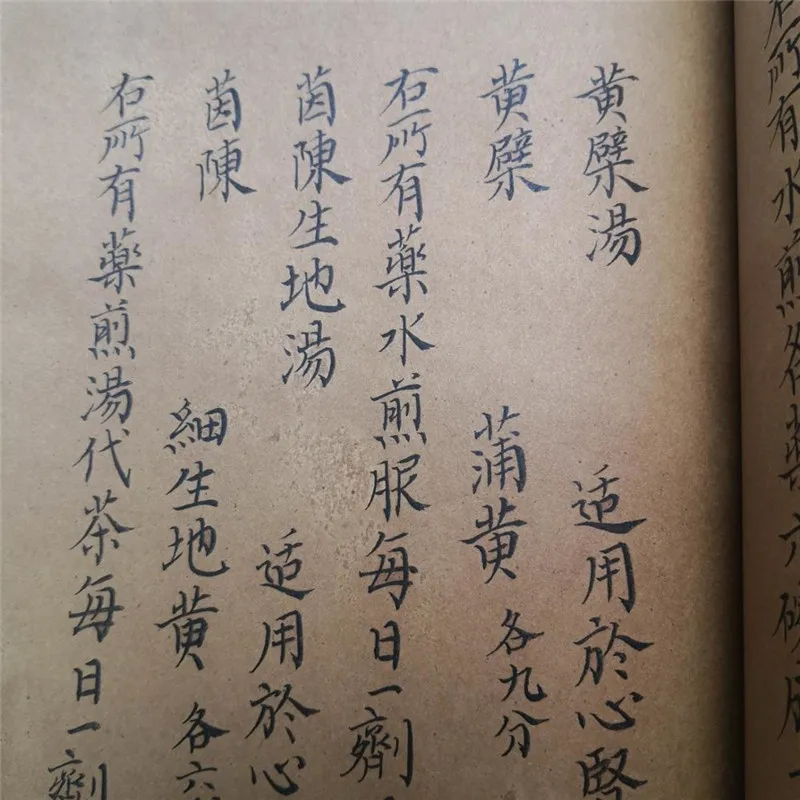 右所有水煎各藥六碗服
黄檗湯 适用於心腎
黄檗 蒲黄 各九分
右所有藥水煎服每日一劑
茵陳生地湯 适用於心
茵陳 細生地黄 各六
右所有藥煎湯代茶每日一劑